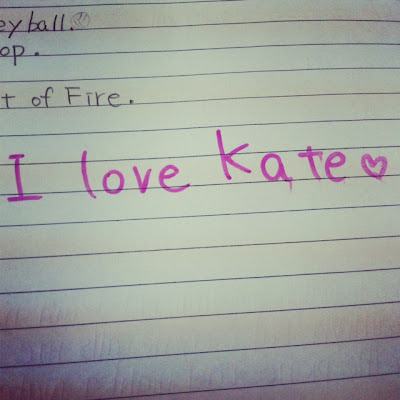 eyball.
op.
t of Fire.
I love Kate♡